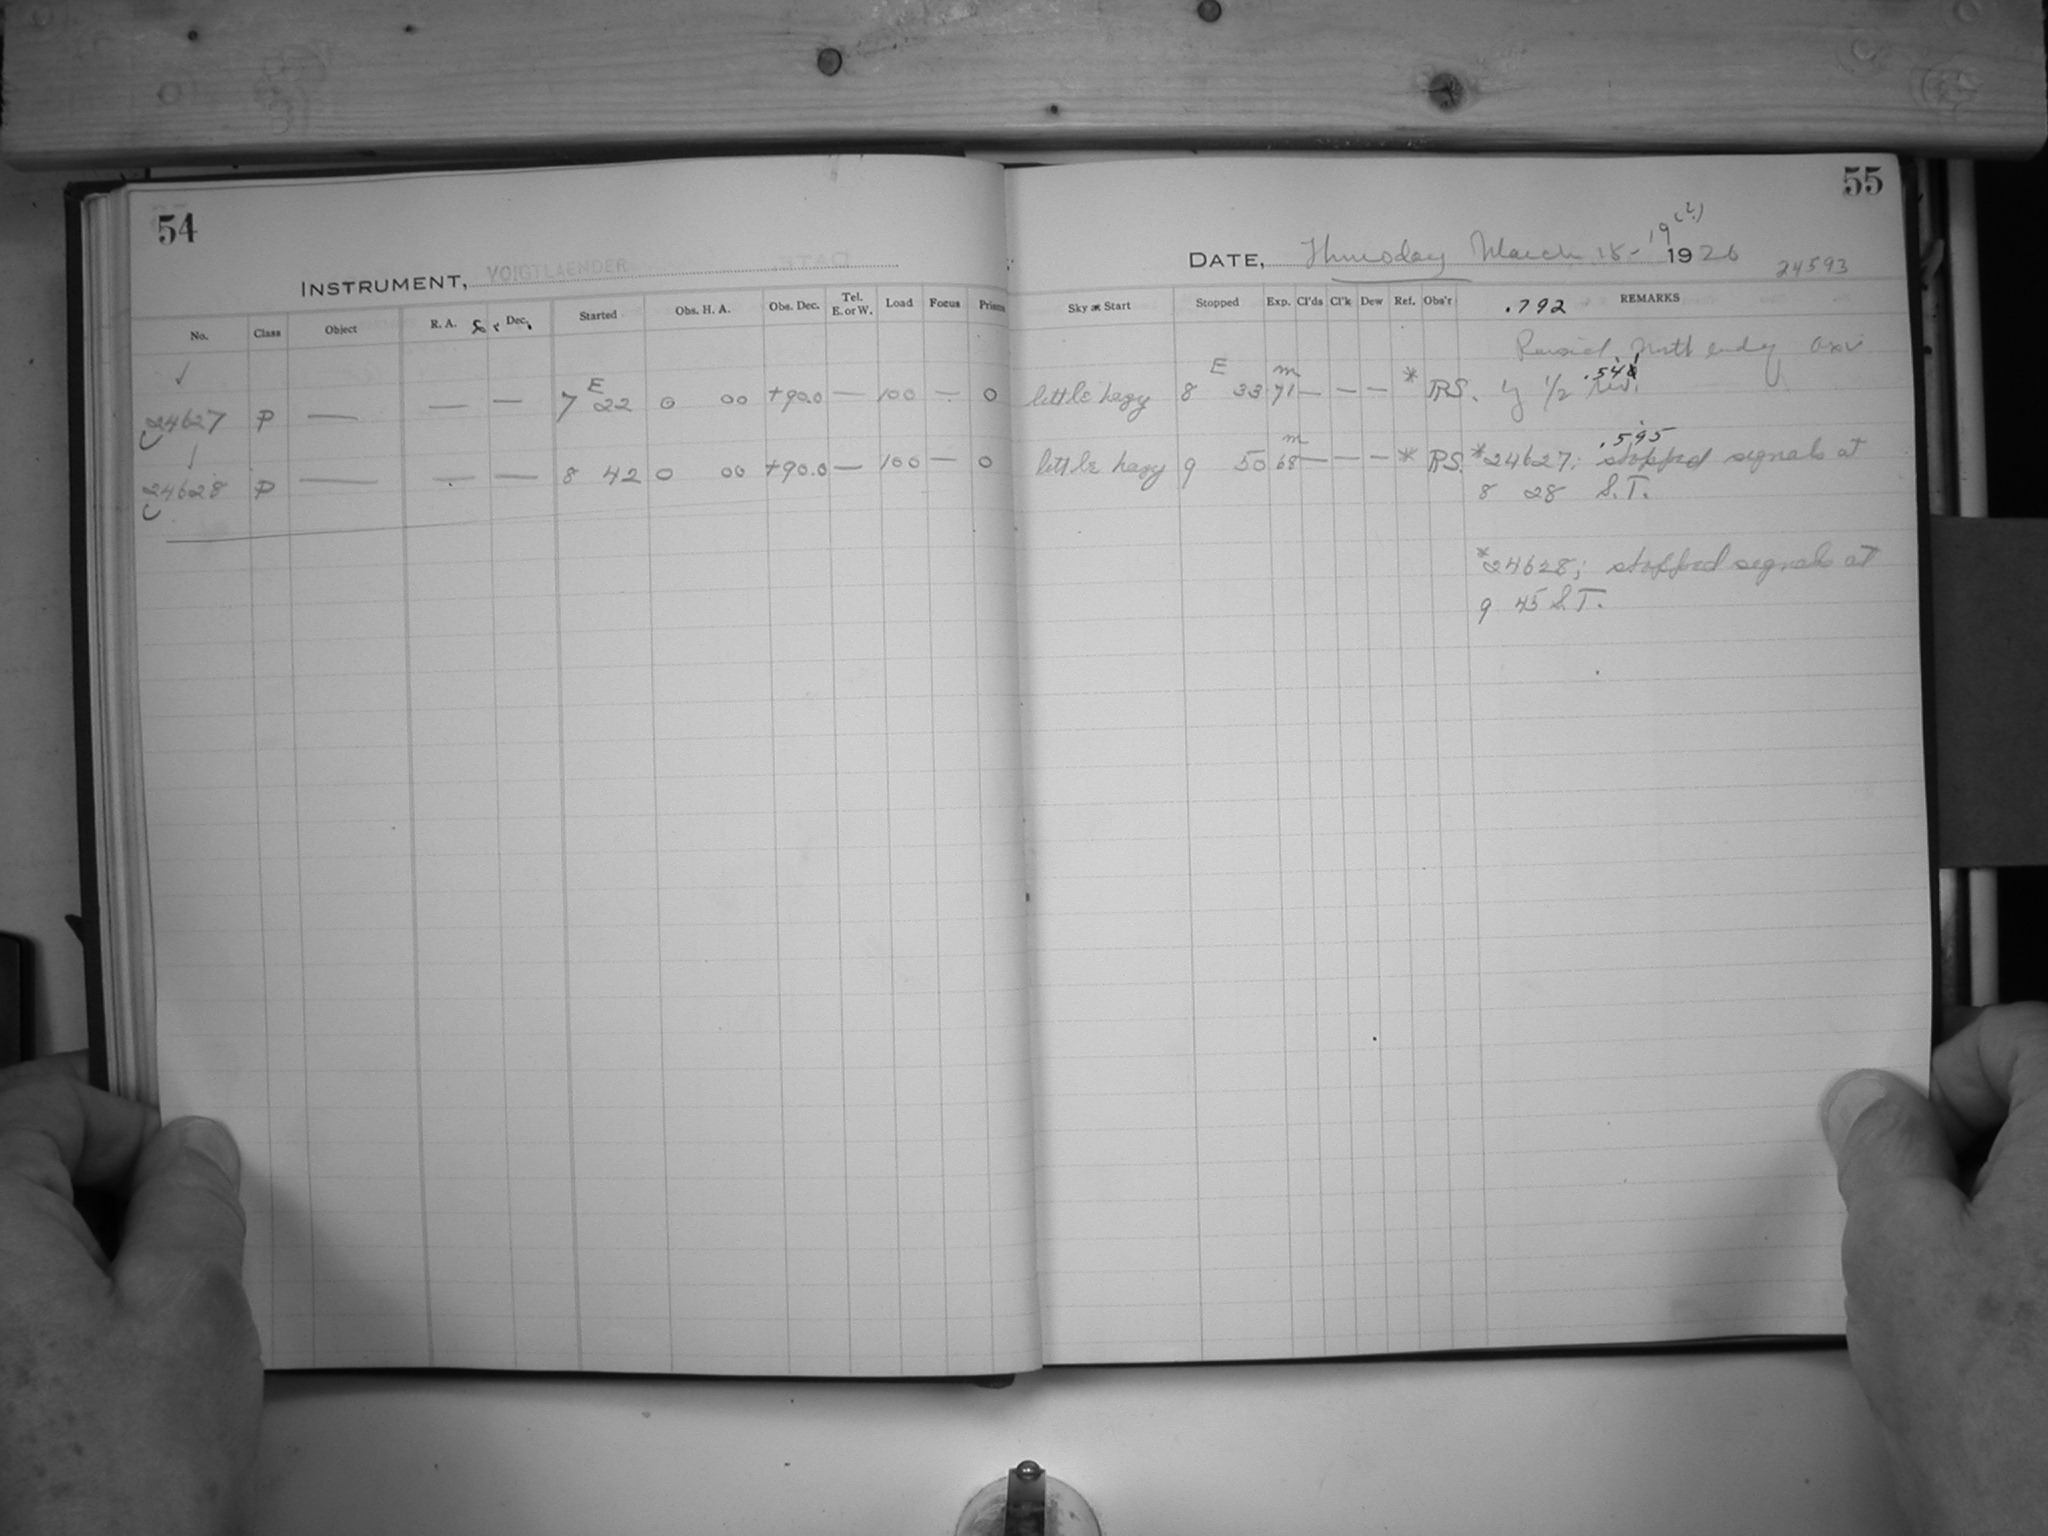 54
INSTRUMENT, VOIGTLAENDER
No. Class Object R. A. & Dec. Started Obs. H. A. Obs. Dec. Tel. E. or W. Load Focus Prisms
✓
24627 P — — — 7 E 22 0 00 +90.0 — 100 — 0
24628 P — — — 8 42 0 00 +90.0 — 100 — 0
55
DATE, Thursday March 18-19 (2) 1926
24593
Sky at Start Stopped Exp. Cl'ds Cl'k Dew Ref. Obs'r .792 REMARKS
North end of axis
little hazy 8 E 33 71 m — — — * RS. by 1/2 rev. .548
little hazy 9 50 68 m — — — * RS. *24627; stopped signals at .595
8 28 S.T.
*24628; stopped signals at
9 45 S.T.